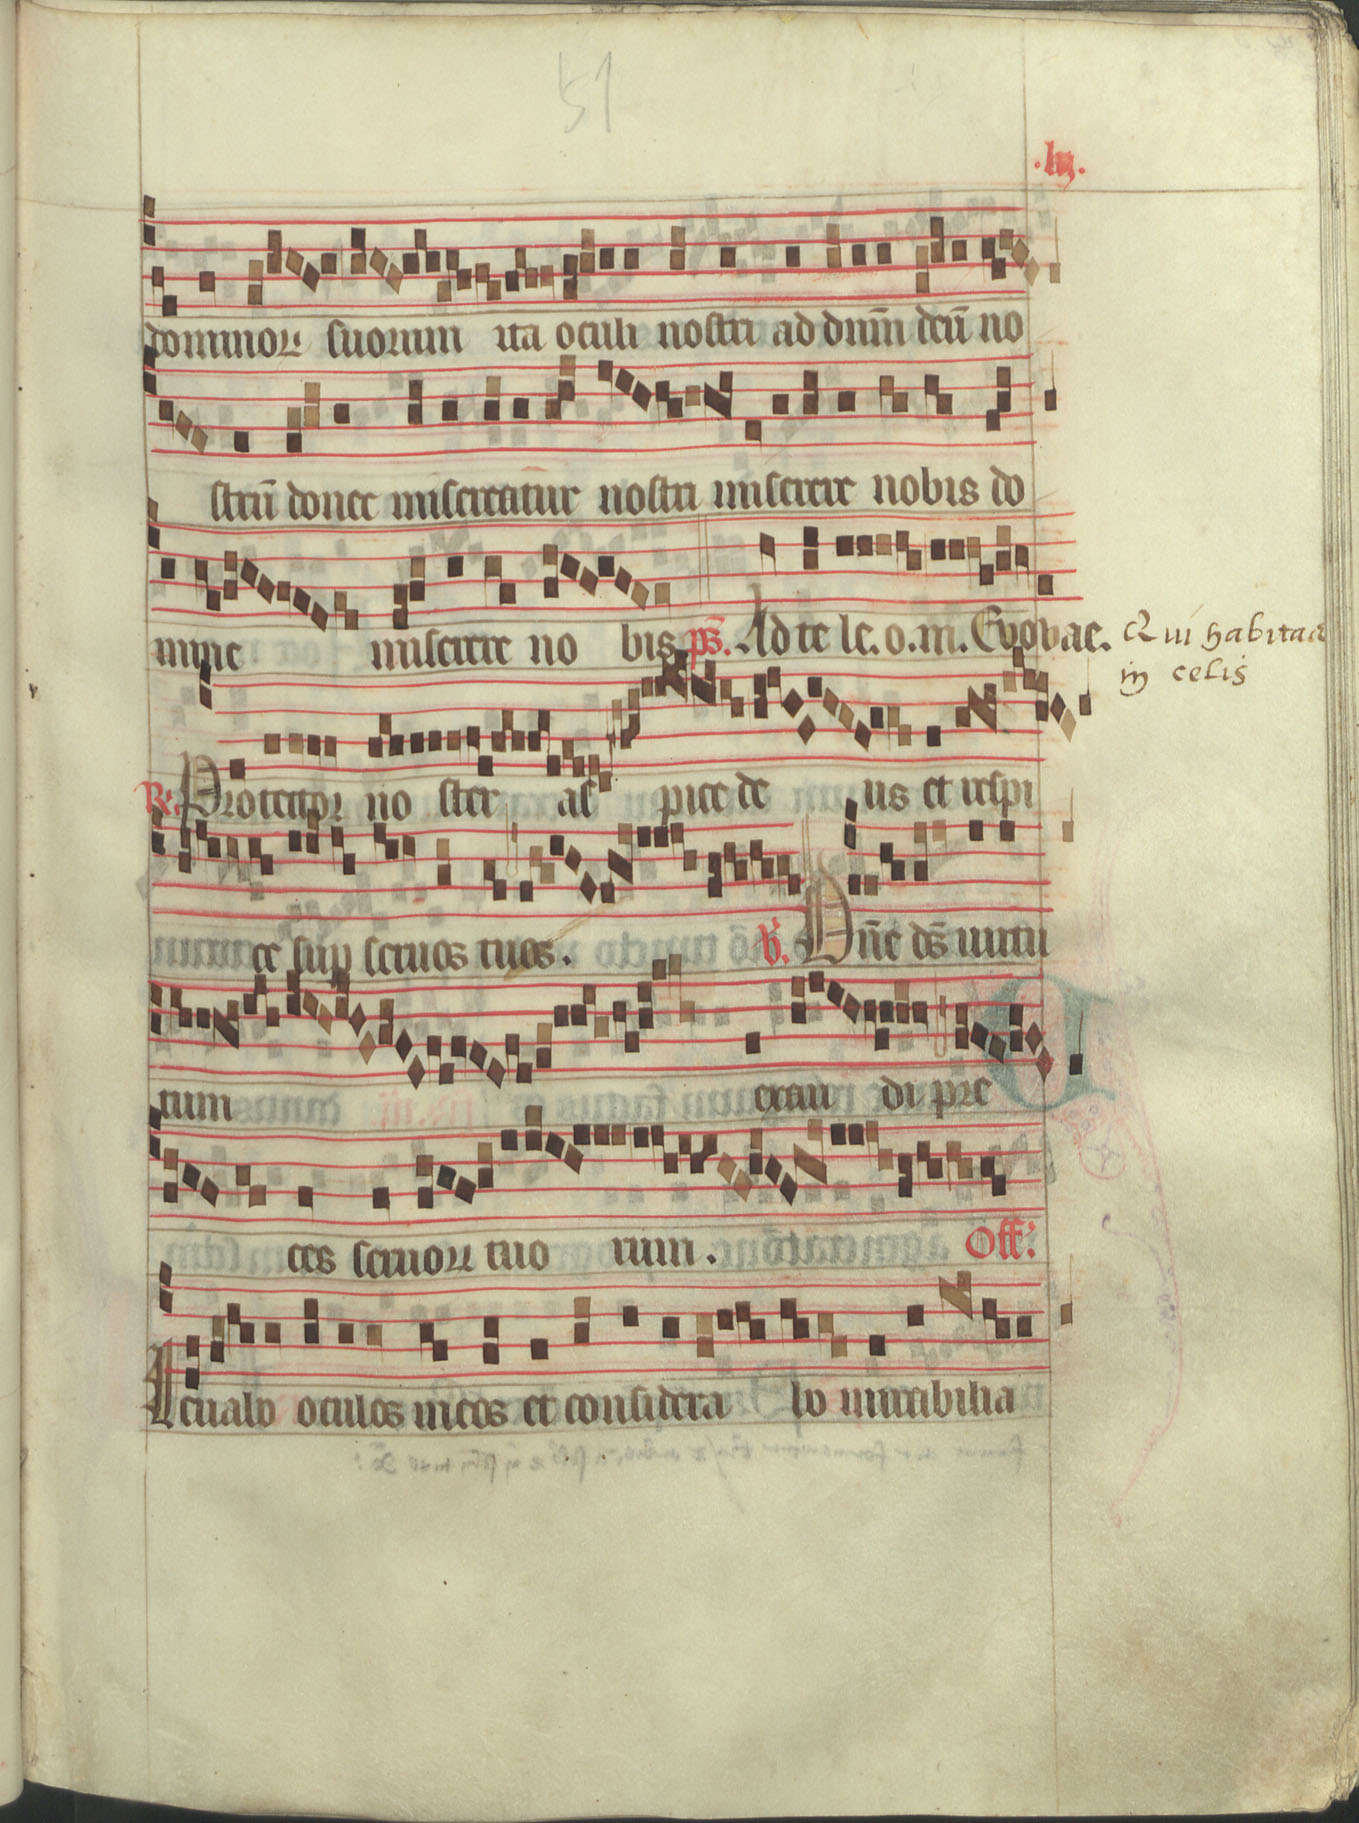 51
.lij.
dominoꝝ suorum ita oculi nostri ad dnm̄ deū no
strū donec misereatur nostri miserere nobis do
mine miserere no bis ps̄. Ad te le. o. m. Evovae. Qui habitas
in celis
R̃. Protector no ster as pice de us et respi
ce sup seruos tuos. V̓. Dn̄e ds̄ uirtu
tum exau di pre
ces seruoꝝ tuo rum. Off:
Leuabo oculos meos et considera bo mirabilia